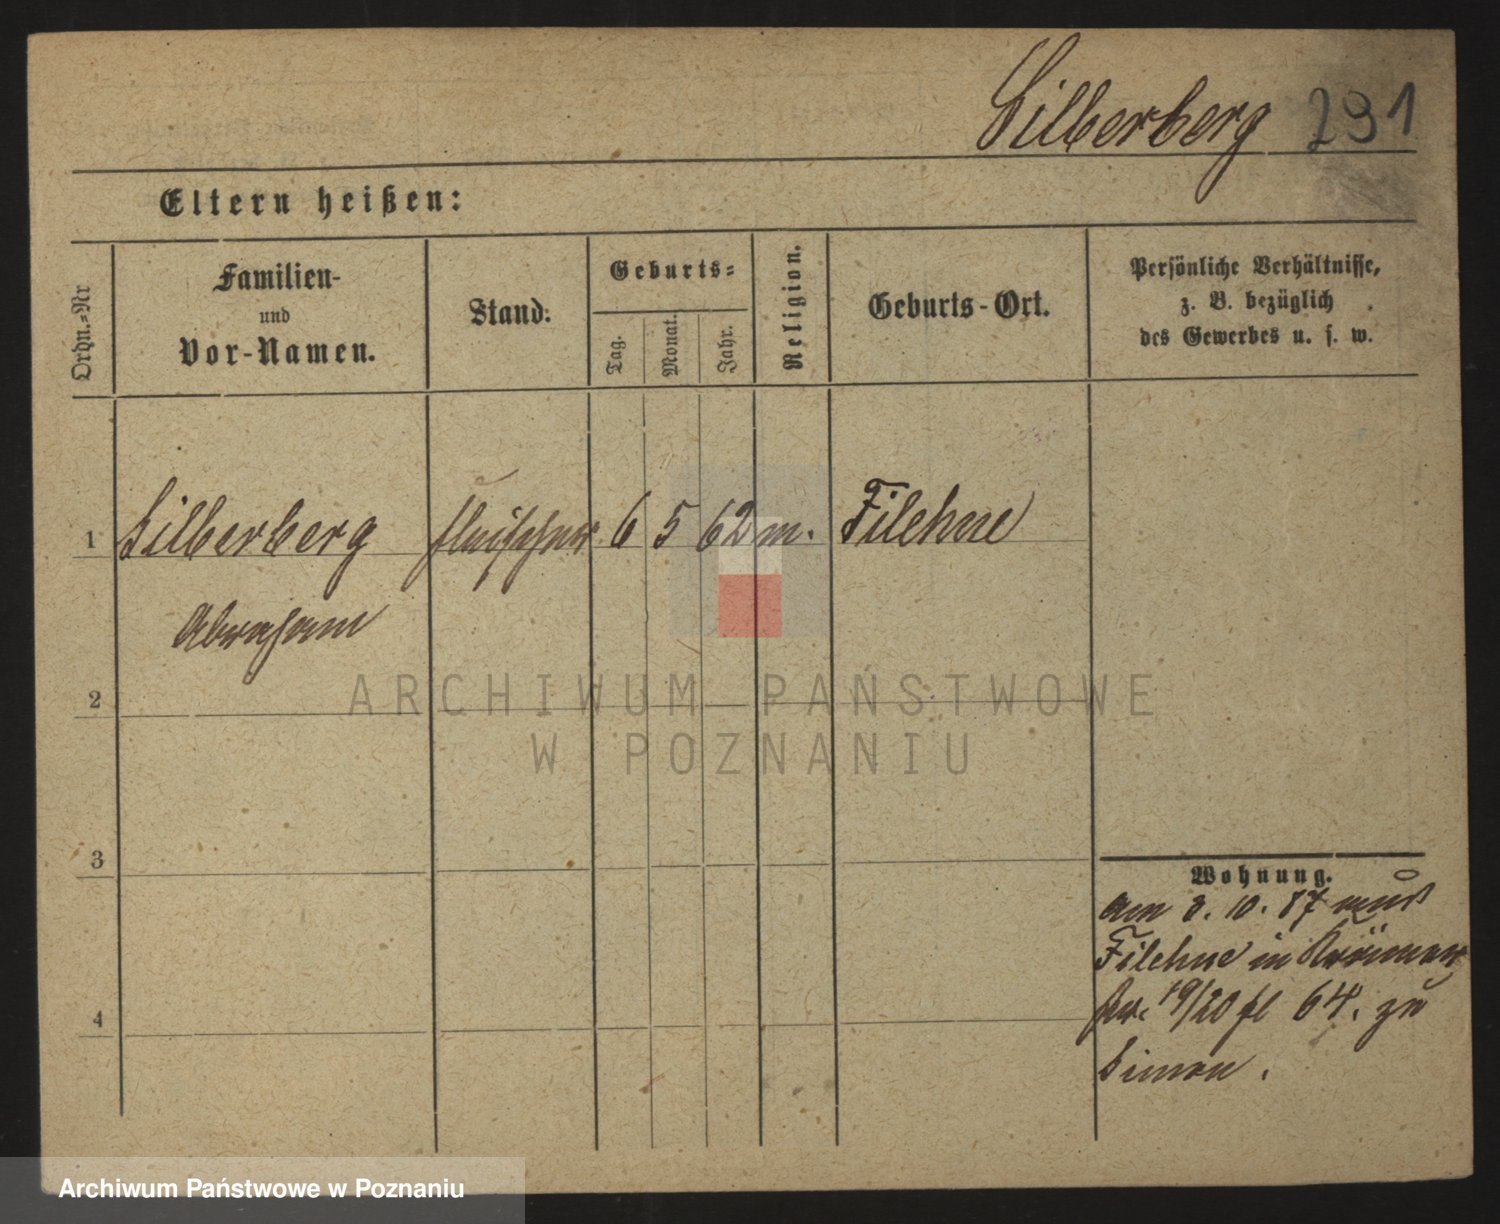 Silberberg 291
Eltern heißen:
Ordn.-Nr
Familien-
und
Vor-Namen.
Stand.
Geburts-
Tag.
Monat.
Jahr.
Religion.
Geburts-Ort.
Persönliche Verhältnisse,
z. B. bezüglich
des Gewerbes u. s. w.
1 Silberberg Fleischer 6 5 62 m. Filehne
Abraham
2
ARCHIWUM PAŃSTWOWE
W POZNANIU
3
4
Wohnung.
am 3. 10. 87 aus
Filehne in
19/20 fl 64. zu
Simon.
Archiwum Państwowe w Poznaniu